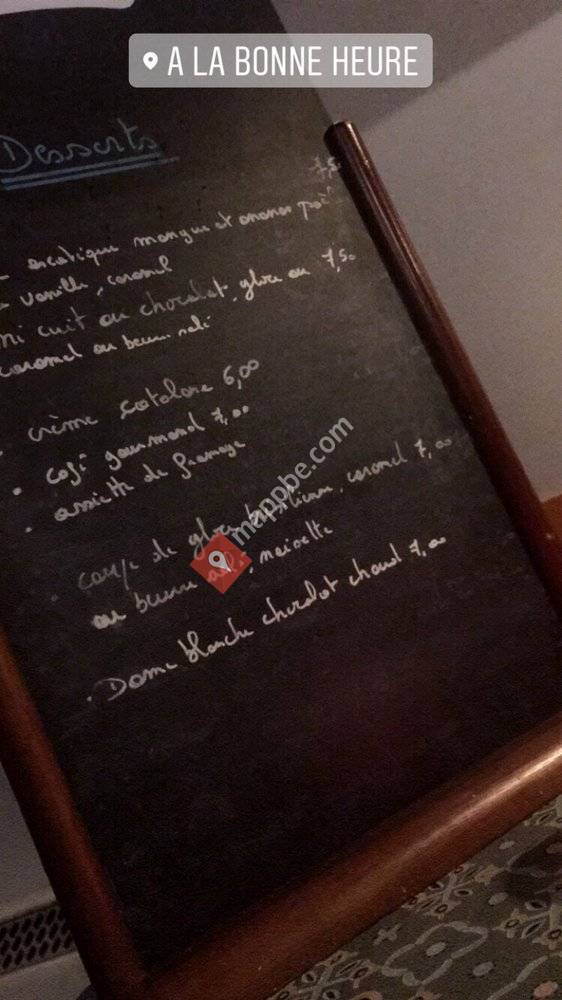 A LA BONNE HEURE
Desserts
exotique mangue et ananas 7,50
vanille, caramel
mi cuit au chocolat, glace au 7,50
caramel au beurre salé
crème catalane 6,00
café gourmand 7,00
assiette de fromage
coupe de glace brésilienne, caramel 7,00
au beurre salé, noisette
Dame blanche chocolat chaud 7,00
mappbe.com